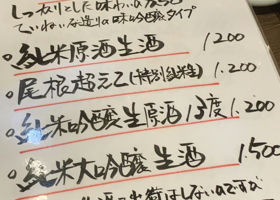 しっかりとした味わいの
ていねいな造りの味吟醸タイプ
・純米原酒生酒 1200
・尾根超えて(特別純米) 1.200
・純米吟醸生原酒 15度 1.200
・純米大吟醸生酒 1.500
出荷はしないのですが